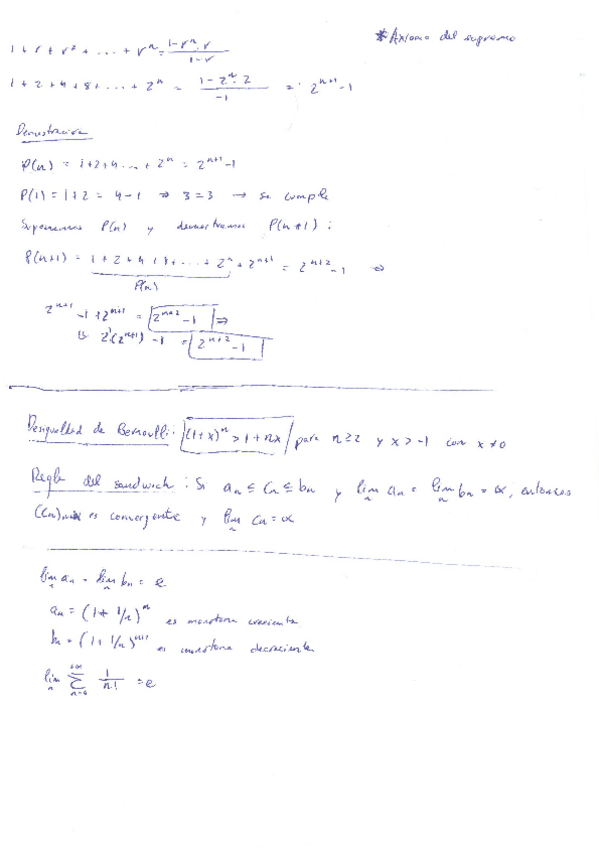 *Axioma del supremo
1 + r + r² + ... + rⁿ = (1 - rⁿ·r)/(1 - r)
1 + 2 + 4 + 8 + ... + 2ⁿ = (1 - 2ⁿ·2)/(-1) = 2ⁿ⁺¹ - 1
Demostración
P(n) = 1+2+4 ... + 2ⁿ = 2ⁿ⁺¹ - 1
P(1) = 1+2 = 4-1 ⇒ 3=3 → se cumple
Suponemos P(n) y demostramos P(n+1):
P(n+1) = 1 + 2 + 4 + ... + 2ⁿ + 2ⁿ⁺¹ = 2ⁿ⁺² - 1 ⇒
P(n)
2ⁿ⁺¹ - 1 + 2ⁿ⁺¹ = 2ⁿ⁺² - 1 ⇒
2·(2ⁿ⁺¹) - 1 = 2ⁿ⁺² - 1
Desigualdad de Bernoulli: (1+x)ⁿ > 1+nx para n≥2 y x>-1 con x≠0
Regla del sandwich: Si aₙ ≤ cₙ ≤ bₙ y lim aₙ = lim bₙ = α, entonces
(cₙ) es convergente y lim cₙ = α
lim aₙ = lim bₙ = e
aₙ = (1 + 1/n)ⁿ es monótona creciente
bₙ = (1 + 1/n)ⁿ⁺¹ es monótona decreciente
lim Σ 1/n! = e